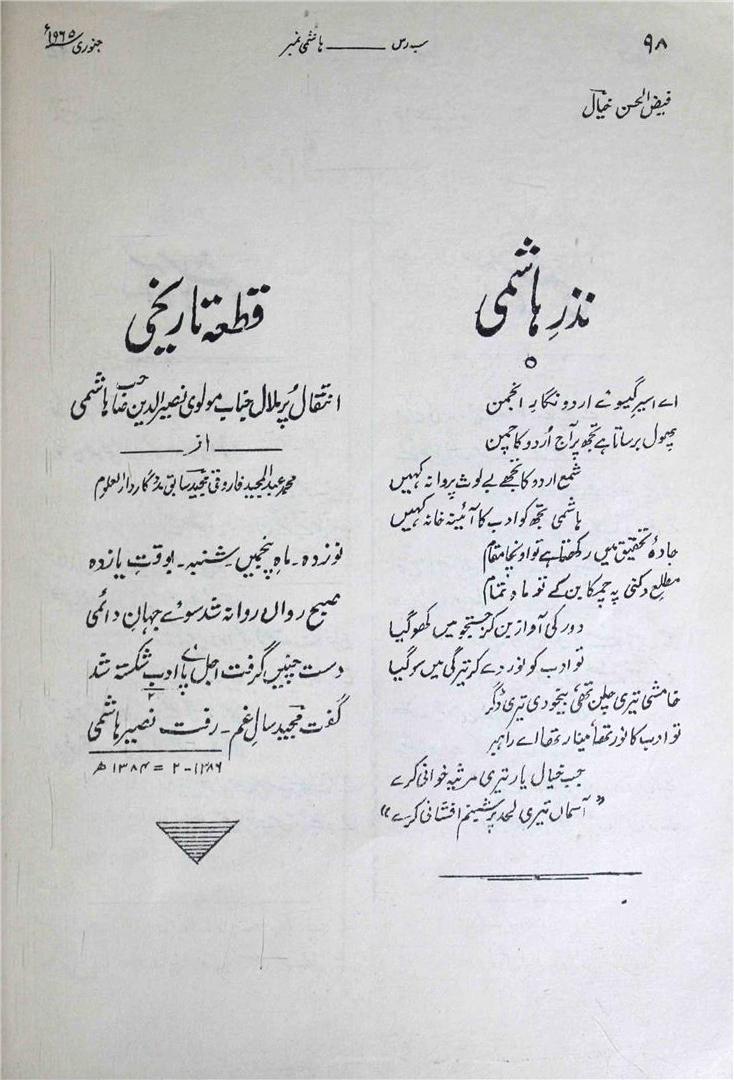 ۹۸
سب رس ــــــ ہاشمی نمبر
جنوری ۱۹۶۵ء
فیض الحسن خیالؔ
نذرِ ہاشمی
اے اسیرِ گیسوئے اردو نگارِ انجمن
پھول برساتا ہے تجھ پر آج اُردو کا چمن
شمع اردو کا تجھے بے لوث پروانہ کہیں
ہاشمی تجھ کو ادب کا آئینہ خانہ کہیں
جادۂ تحقیق میں رکھتا ہے تو اونچا مقام
مطلعِ دکنی پہ چمکا بن کے تو ماہِ تمام
دور کی آواز بن کر جستجو میں کھو گیا
تو ادب کو نور دے کر تیرگی میں سو گیا
خامشی تیری چلن تھی بیخودی تیری ڈگر
تو ادب کا نور تھا مینار تھا اے راہبر
جب خیالِ یار تیری مرثیہ خوانی کرے
"آسماں تیری لحد پر شبنم افشانی کرے"
قطعہ تاریخی
انتقال پُر ملال جناب مولوی نصیر الدین صاحب ہاشمی
از
محمد عبدالمجید فاروقی مجید سابق مددگار دارالعلوم
نوزدہ۔ ماہِ پنجمیں شنبہ۔ بوقتِ یازدہ
صبح رواں روانہ شد سوئے جہانِ دائمی
دست چنیں گرفت اجل پائے ادب شکستہ شد
۲
گفت مجید سالِ غم۔ رفت نصیر ہاشمی
۱۳۸۶ - ۲ = ۱۳۸۴ ھ